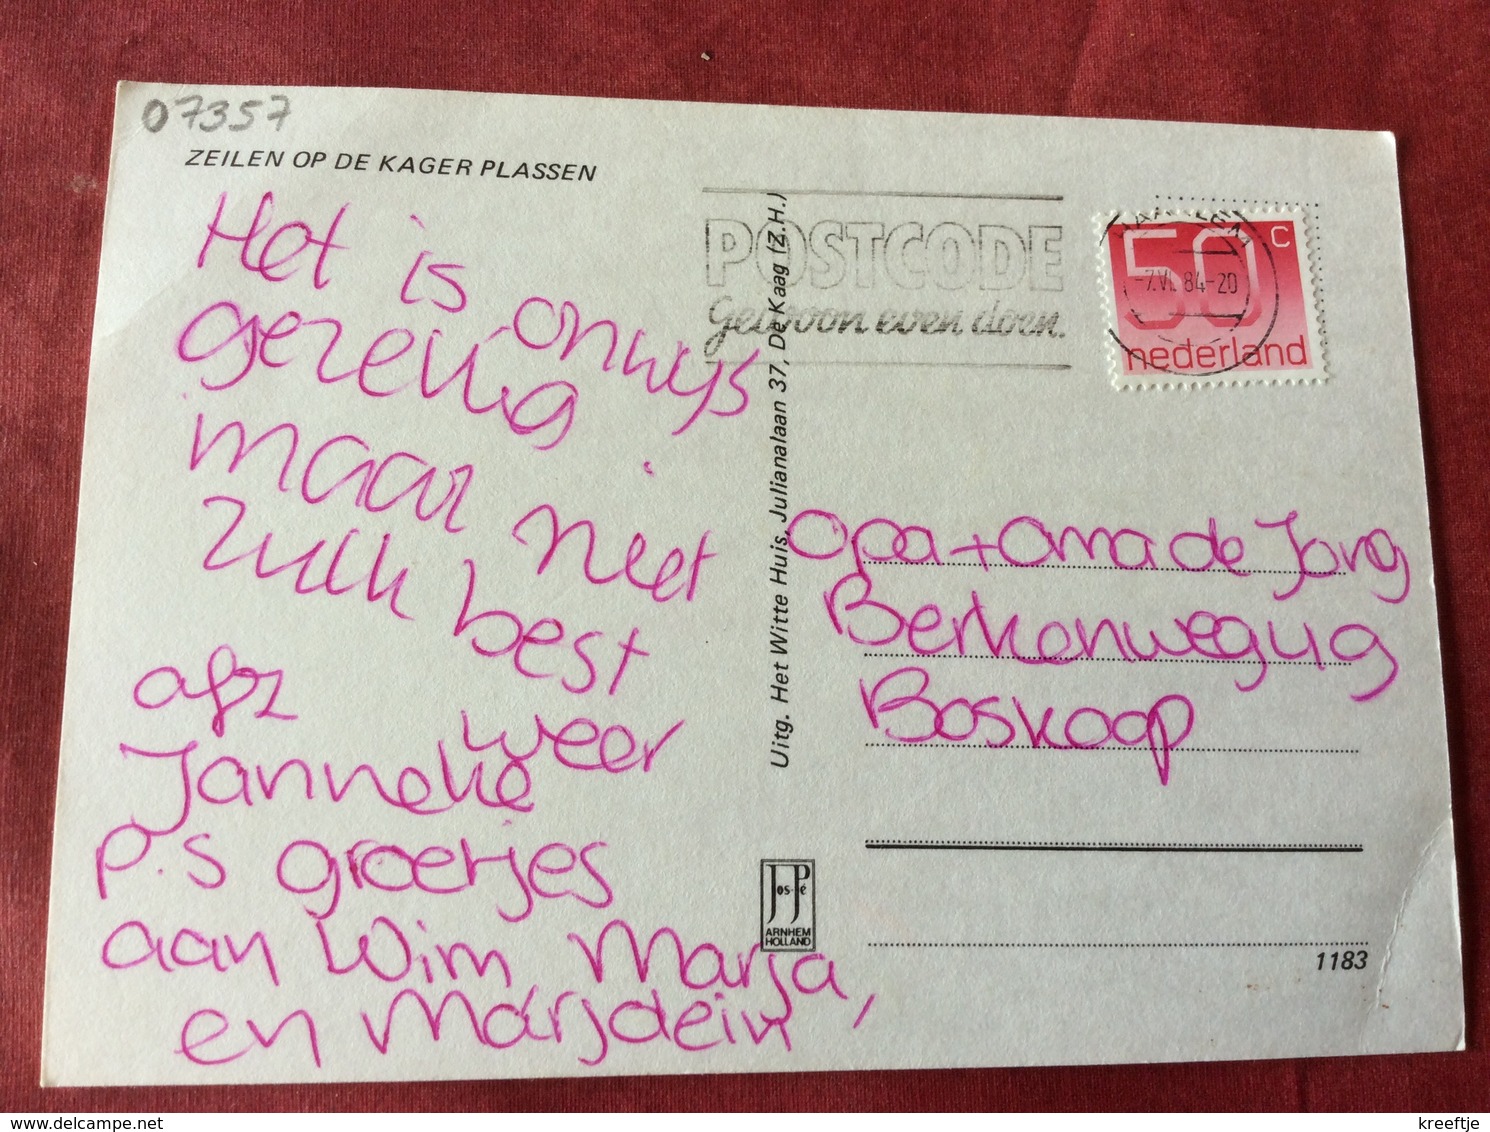 07357
ZEILEN OP DE KAGER PLASSEN
Het is onwijs
gezellig
maar niet
zulk best
weer
afz
Janneke
P.S groetjes
aan Wim Marja,
en Marjdein
Uitg. Het Witte Huis, Julianalaan 37, De Kaag (Z.H.)
POSTCODE
Gewoon even doen.
50 c
nederland
-7.VI.84-20
Opa + Oma de Jong
Berkenweg 49
Boskoop
Jos-Pé
ARNHEM
HOLLAND
1183
kreeftje